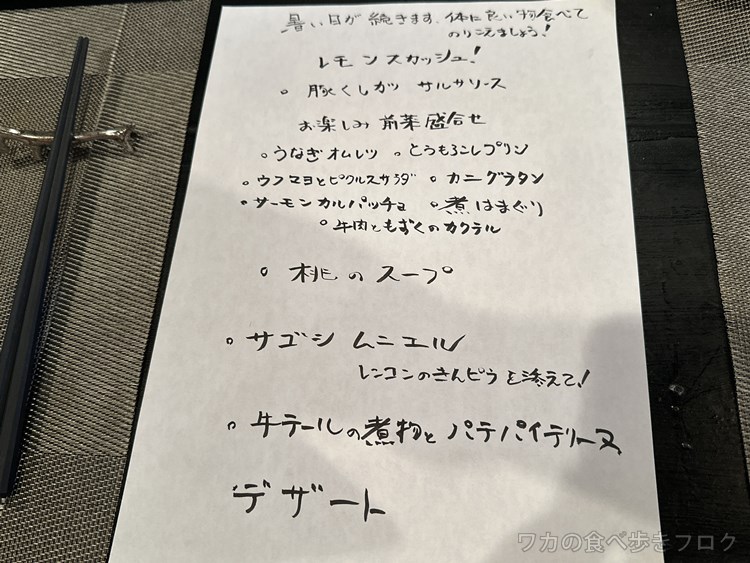 暑い日が続きます。体に良い物食べて
のりこえましょう!
レモンスカッシュ!
○ 豚くしカツ サルサソース
お楽しみ前菜盛合せ
○うなぎオムレツ ○とうもろこしプリン
○ウフマヨとピクルスサラダ ○カニグラタン
○サーモンカルパッチョ ○煮はまぐり
○牛肉ともずくのカクテル
○ 桃のスープ
○サゴシ ムニエル
レンコンのきんピラを添えて!
○牛テールの煮物と パテパイテリーヌ
デザート
ワカの食べ歩きブログ